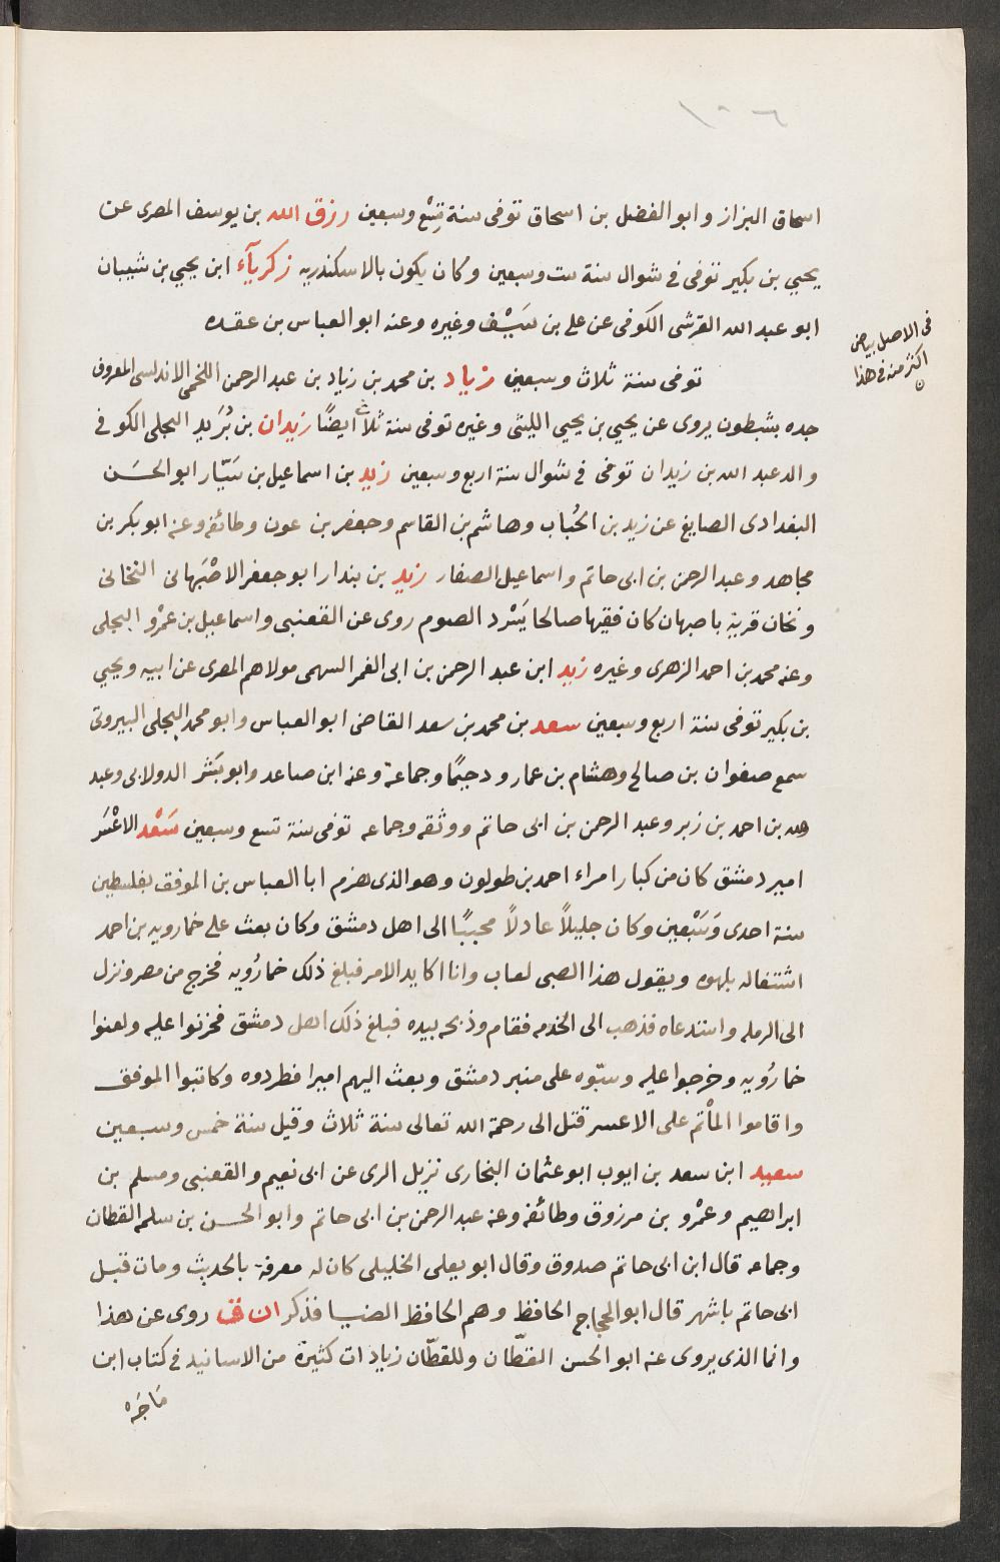 اسحاق البزاز وابو الفضل بن اسحاق توفى سنة تِسْع وسبعين رزق الله بن يوسف المصرى عن
يحيى بن بكير توفى فى شوال سنة ست وسبعين وكان يكون بالاسكندريه زكريآء ابن يحيى بن شيبان
ابو عبد الله القرشى الكوفى عن على بن سَيْف وغيره وعنه ابو العباس بن عقده
فى الاصل بياض
اكثر منه فى هذا
توفى سنة ثلاث وسبعين زياد بن محمد بن زياد بن عبد الرحمن اللخمى الاندلسى المعروف
جده بشبطون يروى عن يحيى بن يحيى الليثى وغيره توفى سنة ثلاث ايضًا زيدان بن بُرَيد البجلى الكوفى
والد عبد الله بن زيدان توفى فى شوال سنة اربع وسبعين زيد بن اسماعيل بن سَيّار ابو الحسَن
البغدادى الصايغ عن زيد بن الحُباب وهاشم بن القاسم وجعفر بن عون وطائفه وعنه ابو بكر بن
مجاهد وعبد الرحمن بن ابى حاتم واسماعيل الصفار زيد بن بندار ابو جعفر الاصْبَهانى النخانى
ونخان قرية باصبهان كان فقيها صالحا يَسْرد الصوم روى عن القعنبى واسماعيل بن عمْرو البجلى
وعنه محمد بن احمد الزهرى وغيره زيد ابن عبد الرحمن بن ابى الغمر السهمى مولاهم المصرى عن ابيه ويحيى
بن بكير توفى سنة اربع وسبعين سعد بن محمد بن سعد القاضى ابو العباس وابو محمد البجلى البيروتى
سمع صفوان بن صالح وهشام بن عمار ودحيمًا وجماعة وعنه ابن صاعد وابو بَشَر الدولابى وعبد
الله بن احمد بن زبر وعبد الرحمن بن ابى حاتم ووثقه وجماعه توفى سنة تسع وسبعين سَعْد الاعْسَر
امير دمشق كان من كبار امراء احمد بن طولون وهو الذى هزم ابا العباس بن الموفق بفلسطين
سنة احدى وَسَبْعين وكان جليلاً عادلاً محببًا الى اهل دمشق وكان بعث على خمارويه بن احمد
اشتغاله بلهوه ويقول هذا الصبى لعاب وانا اكايد الامر فبلغ ذلك خمارُويه فخرج من مصر ونزل
الى الرمله واستدعاه فذهب الى الخدمه فقام وذبحه بيده فبلغ ذلك اهل دمشق فحزنوا عليه ولعنوا
خمارُويه وخرجوا عليه وسبّوه على منبر دمشق وبعث اليهم اميرا فطردوه وكاتبوا الموفق
واقاموا المأْتم على الاعسر قتل الى رحمة الله تعالى سنة ثلاث وقيل سنة خمس وسبعين
سعيد ابن سعد بن ايوب ابو عثمان البخارى نزيل الرى عن ابى نعيم والقعنبى ومسلم بن
ابراهيم وعمْرو بن مرزوق وطائفه وعنه عبد الرحمن بن ابى حاتم وابو الحسن بن سلمه القطان
وجماعه قال ابن ابى حاتم صدوق وقال ابو يعلى الخليلى كان له معرفة بالحديث ومات قبل
ابى حاتم باشهر قال ابو الحجاج الحافظ وهم الحافظ الضيا فذكر ان ق روى عن هذا
وانما الذى يروى عنه ابو الحسن القطّان وللقطّان زيادات كثيرة من الاسانيد فى كتاب ابن
مَاجَه